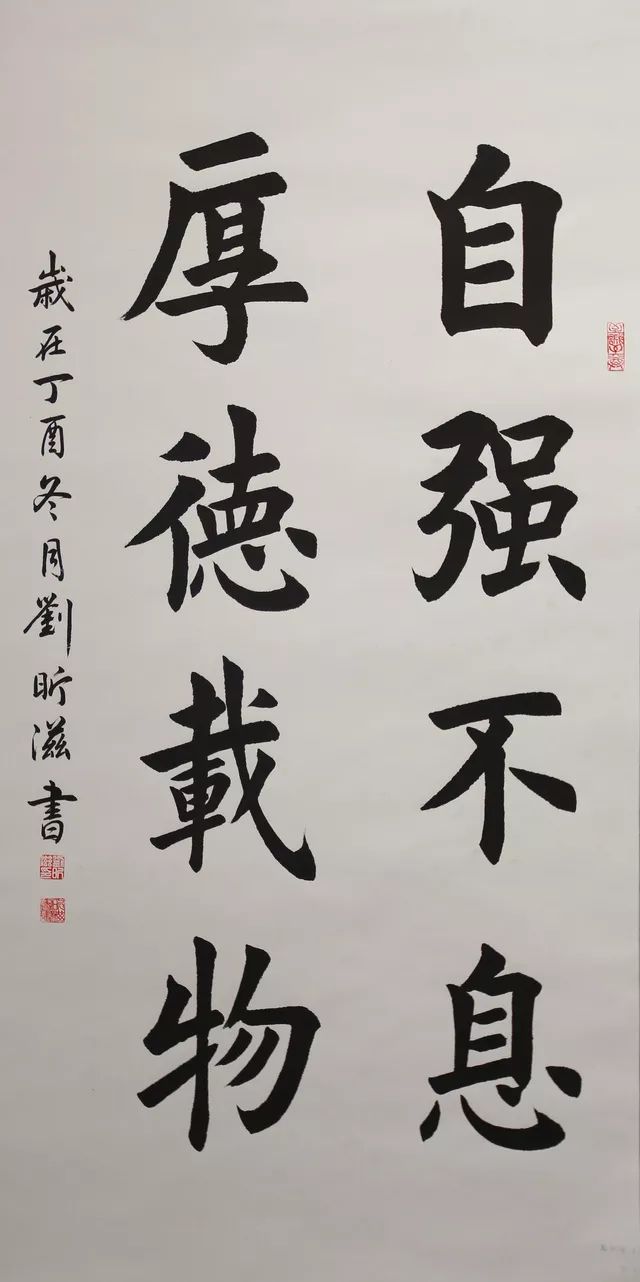 自强不息
厚德載物
歲在丁酉冬月劉昕滋書